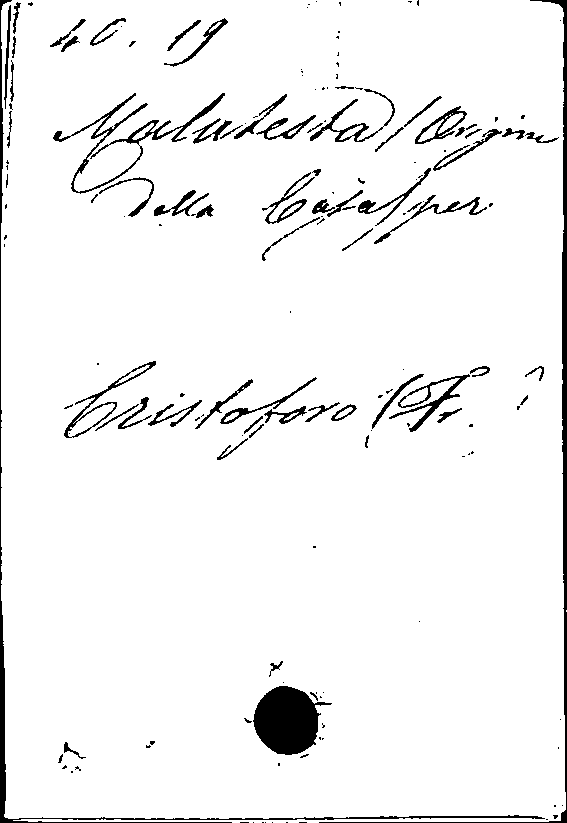 40. 19
Malatesta (Origine
della Casa) per
Cristoforo (Fr. )